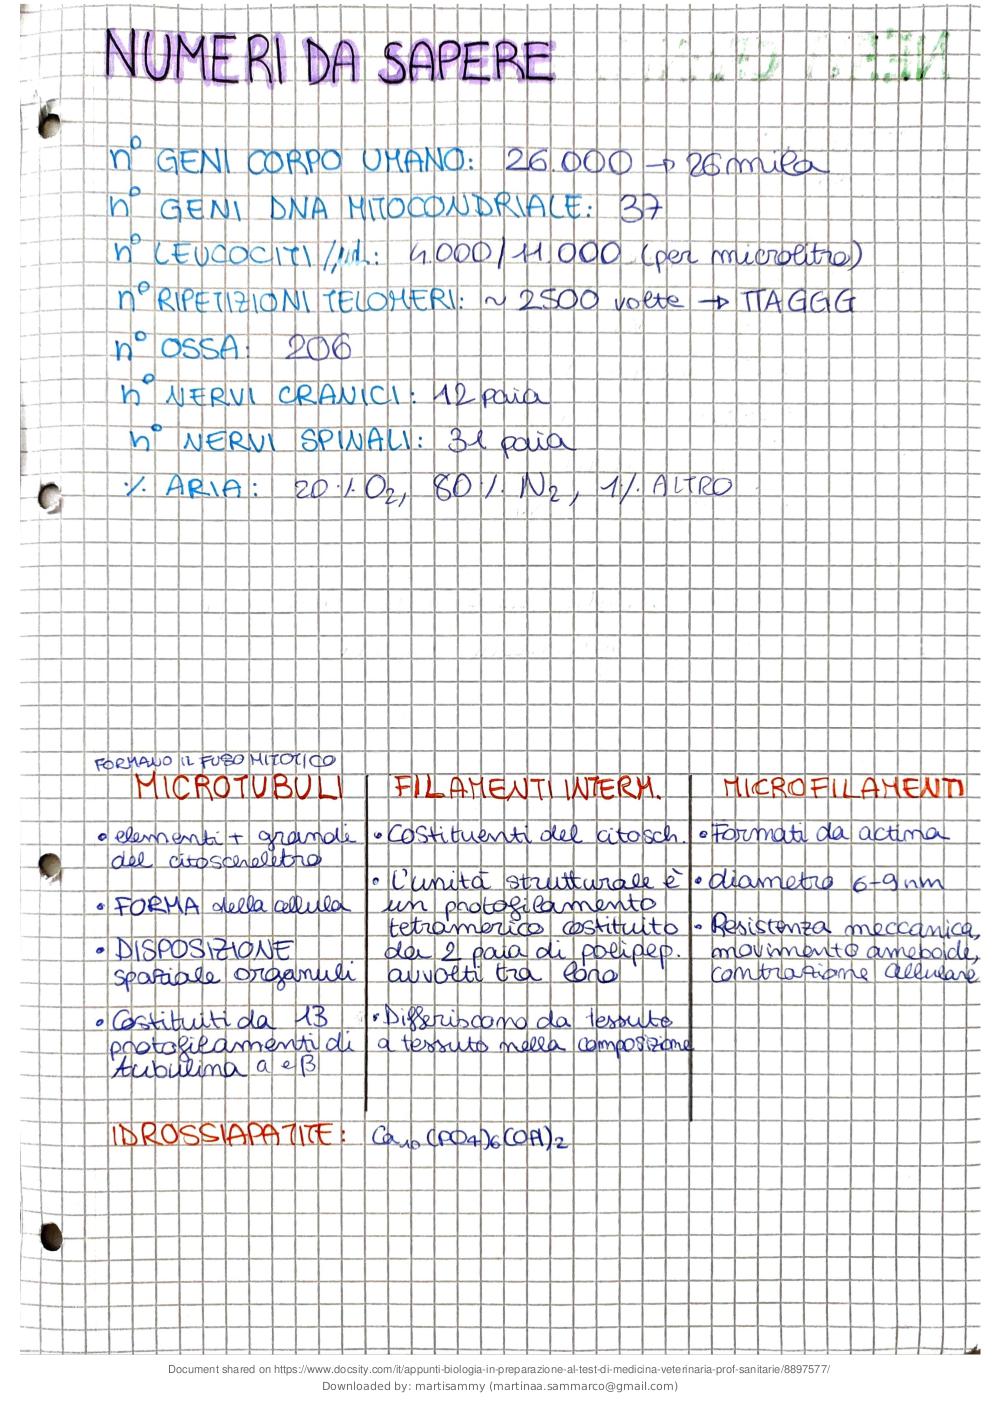 NUMERI DA SAPERE
n° GENI CORPO UMANO: 26.000 → 26mila
n° GENI DNA MITOCONDRIALE: 37
n° LEUCOCITI /μl.: 4.000/11.000 (per microlitro)
n° RIPETIZIONI TELOMERI: ~ 2500 volte → TTAGGG
n° OSSA: 206
n° NERVI CRANICI: 12 paia
n° NERVI SPINALI: 31 paia
% ARIA: 20% O2, 80% N2, 1% ALTRO
FORMANO IL FUSO MITOTICO
MICROTUBULI
• elementi + grandi
del citoscheletro
• FORMA della cellula
• DISPOSIZIONE
spaziale organuli
• Costituiti da 13
protofilamenti di
tubulina α e β
FILAMENTI INTERM.
• Costituenti del citosch.
• L'unità strutturale è
un protofilamento
tetramerico costituito
da 2 paia di polipep.
avvolti tra loro
• Differiscono da tessuto
a tessuto nella composizione
MICROFILAMENTI
• Formati da actina
• diametro 6-9 nm
• Resistenza meccanica,
movimento ameboide,
contrazione cellulare
IDROSSIAPATITE: Ca10(PO4)6(OH)2
Document shared on https://www.docsity.com/it/appunti-biologia-in-preparazione-al-test-di-medicina-veterinaria-prof-sanitarie/8897577/
Downloaded by: martisammy (martinaa.sammarco@gmail.com)